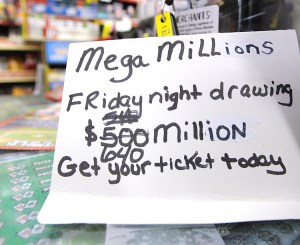 MERCHANTS:
Mega MiLLions
FRiday night drawing
$500 MiLLioN
640
Get your ticket today